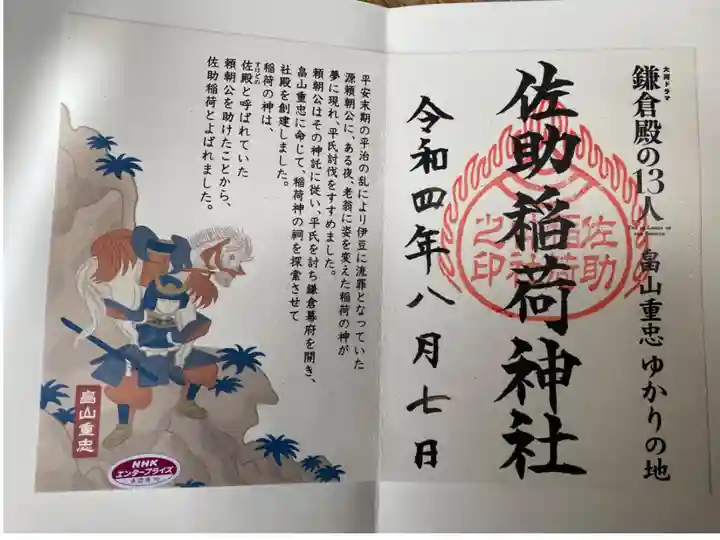 大河ドラマ
鎌倉殿の13人
畠山重忠 ゆかりの地
佐助稲荷神社
佐助
稲荷
神社
之印
令和四年八月七日
平安末期の平治の乱により伊豆に流罪となっていた
源頼朝公に、ある夜、老翁に姿を変えた稲荷の神が
夢に現れ、平氏討伐をすすめました。
頼朝公はその神託に従い、平氏を討ち鎌倉幕府を開き、
畠山重忠に命じて、稲荷神の祠を探索させて
社殿を創建しました。
稲荷の神は、
佐殿と呼ばれていた
すけどの
頼朝公を助けたことから、
佐助稲荷とよばれました。
畠山重忠
NHK
エンタープライズ